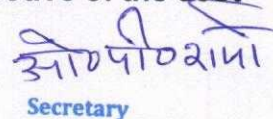 ओ०पी०शर्मा
Secretary